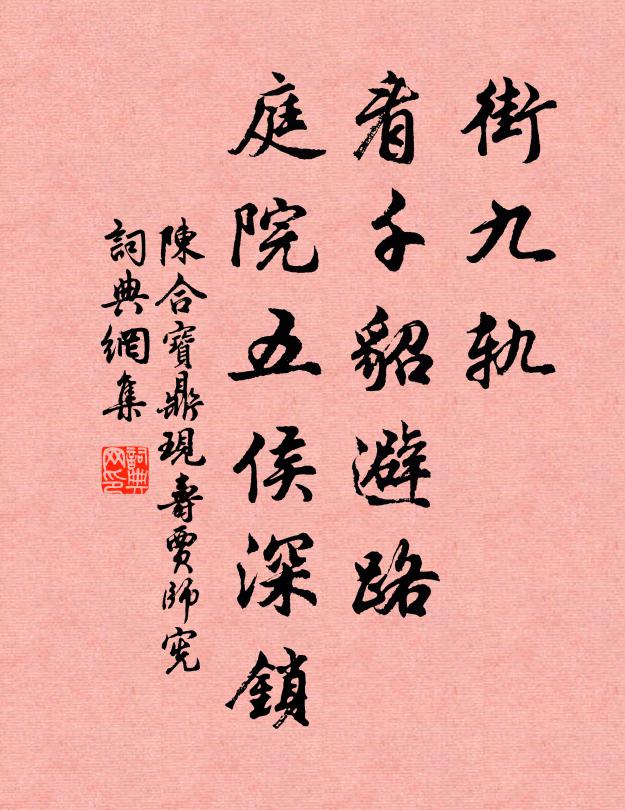 街九軌
看千貂避路
庭院五侯深鎖
陳合寶鼎現壽賈師憲
詞典網集
詞典网印